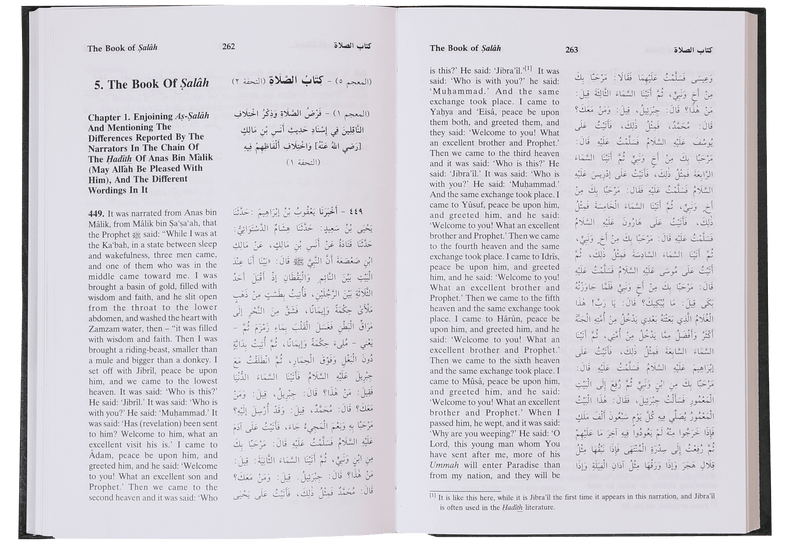 The Book of Ṣalâh 262 كتاب الصلاة
5. The Book Of Ṣalâh
(المعجم ٥) - كتاب الصلاة (التحفة ٢)
Chapter 1. Enjoining Aṣ-Ṣalâh
And Mentioning The
Differences Reported By The
Narrators In The Chain Of
The Hadîth Of Anas Bin Mâlik
(May Allâh Be Pleased With
Him), And The Different
Wordings In It
(المعجم ١) - فَرْضُ الصَّلَاةِ وَذِكْرُ اخْتِلَافِ
النَّاقِلِينَ فِي إِسْنَادِ حَدِيثِ أَنَسِ بْنِ مَالِكٍ
[رَضِيَ اللهُ عَنْهُ] وَاخْتِلَافِ أَلْفَاظِهِمْ فِيهِ
(التحفة ١)
449. It was narrated from Anas bin
Mâlik, from Mâlik bin Ṣa'ṣa'ah, that
the Prophet ﷺ said: "While I was at
the Ka'bah, in a state between sleep
and wakefulness, three men came,
and one of them who was in the
middle came toward me. I was
brought a basin of gold, filled with
wisdom and faith, and he slit open
from the throat to the lower
abdomen, and washed the heart with
Zamzam water, then – "it was filled
with wisdom and faith. Then I was
brought a riding-beast, smaller than
a mule and bigger than a donkey. I
set off with Jibrîl, peace be upon
him, and we came to the lowest
heaven. It was said: 'Who is this?'
He said: 'Jibrîl.' It was said: 'Who is
with you?' He said: 'Muḥammad.' It
was said: 'Has (revelation) been sent
to him? Welcome to him, what an
excellent visit his is.' I came to
Âdam, peace be upon him, and
greeted him, and he said: 'Welcome
to you! What an excellent son and
Prophet.' Then we came to the
second heaven and it was said: 'Who
٤٤٩ - أَخْبَرَنَا يَعْقُوبُ بْنُ إِبْرَاهِيمَ: حَدَّثَنَا
يَحْيَى بْنُ سَعِيدٍ: حَدَّثَنَا هِشَامٌ الدَّسْتَوَائِيُّ:
حَدَّثَنَا قَتَادَةُ عَنْ أَنَسِ بْنِ مَالِكٍ، عَنْ مَالِكِ
ابْنِ صَعْصَعَةَ أَنَّ النَّبِيَّ ﷺ قَالَ: «بَيْنَا أَنَا عِنْدَ
الْبَيْتِ بَيْنَ النَّائِمِ وَالْيَقْظَانِ إِذْ أَقْبَلَ أَحَدُ
الثَّلَاثَةِ بَيْنَ الرَّجُلَيْنِ، فَأُتِيتُ بِطَسْتٍ مِنْ ذَهَبٍ
مَلْآنَ حِكْمَةً وَإِيمَانًا، فَشَقَّ مِنَ النَّحْرِ إِلَى
مَرَاقِّ الْبَطْنِ فَغَسَلَ الْقَلْبَ بِمَاءِ زَمْزَمَ ثُمَّ -
يَعْنِي - مُلِىءَ حِكْمَةً وَإِيمَانًا، ثُمَّ أُتِيتُ بِدَابَّةٍ
دُونَ الْبَغْلِ وَفَوْقَ الْحِمَارِ، ثُمَّ انْطَلَقْتُ مَعَ
جِبْرِيلَ عَلَيْهِ السَّلَامُ فَأَتَيْنَا السَّمَاءَ الدُّنْيَا
فَقِيلَ: مَنْ هَذَا؟ قَالَ: جِبْرِيلُ، قِيلَ: وَمَنْ
مَعَكَ؟ قَالَ: مُحَمَّدٌ، قِيلَ: وَقَدْ أُرْسِلَ إِلَيْهِ؟
مَرْحَبًا بِهِ وَنِعْمَ الْمَجِيءُ جَاءَ، فَأَتَيْتُ عَلَى آدَمَ
عَلَيْهِ السَّلَامُ فَسَلَّمْتُ عَلَيْهِ قَالَ: مَرْحَبًا بِكَ
مِنِ ابْنٍ وَنَبِيٍّ، ثُمَّ أَتَيْنَا السَّمَاءَ الثَّانِيَةَ: قِيلَ:
مَنْ هَذَا؟ قَالَ: جِبْرِيلُ، قِيلَ: وَمَنْ مَعَكَ؟
قَالَ: مُحَمَّدٌ فَمِثْلُ ذَلِكَ، فَأَتَيْتُ عَلَى يَحْيَى
The Book of Ṣalâh 263 كتاب الصلاة
is this?' He said: 'Jibra'îl.'[1] It was
said: 'Who is with you?' he said:
'Muḥammad.' And the same
exchange took place. I came to
Yaḥya and 'Eisâ, peace be upon
them both, and greeted them, and
they said: 'Welcome to you! What
an excellent brother and Prophet.'
Then we came to the third heaven
and it was said: 'Who is this?' He
said: 'Jibra'îl.' It was said: 'Who is
with you?' He said: 'Muḥammad.'
And the same exchange took place. I
came to Yûsuf, peace be upon him,
and greeted him, and he said:
'Welcome to you! What an excellent
brother and Prophet.' Then we came
to the fourth heaven and the same
exchange took place. I came to Idrîs,
peace be upon him, and greeted
him, and he said: 'Welcome to you!
What an excellent brother and
Prophet.' Then we came to the fifth
heaven and the same exchange took
place. I came to Hârûn, peace be
upon him, and greeted him, and he
said: 'Welcome to you! What an
excellent brother and Prophet.'
Then we came to the sixth heaven
and the same exchange took place. I
came to Mûsâ, peace be upon him,
and greeted him, and he said:
'Welcome to you! What an excellent
brother and Prophet.' When I
passed him, he wept, and it was said:
'Why are you weeping?' He said: 'O
Lord, this young man whom You
have sent after me, more of his
Ummah will enter Paradise than
from my nation, and they will be
وَعِيسَى فَسَلَّمْتُ عَلَيْهِمَا فَقَالَا: مَرْحَبًا بِكَ
مِنْ أَخٍ وَنَبِيٍّ، ثُمَّ أَتَيْنَا السَّمَاءَ الثَّالِثَةَ قِيلَ:
مَنْ هَذَا؟ قَالَ: جِبْرَئِيلُ، قِيلَ: وَمَنْ مَعَكَ؟
قَالَ: مُحَمَّدٌ، فَمِثْلُ ذَلِكَ، فَأَتَيْتُ عَلَى
يُوسُفَ عَلَيْهِ السَّلَامُ فَسَلَّمْتُ عَلَيْهِ قَالَ:
مَرْحَبًا بِكَ مِنْ أَخٍ وَنَبِيٍّ ثُمَّ أَتَيْنَا السَّمَاءَ
الرَّابِعَةَ فَمِثْلُ ذَلِكَ، فَأَتَيْتُ عَلَى إِدْرِيسَ عَلَيْهِ
السَّلَامُ فَسَلَّمْتُ عَلَيْهِ فَقَالَ: مَرْحَبًا بِكَ مِنْ
أَخٍ وَنَبِيٍّ، ثُمَّ أَتَيْنَا السَّمَاءَ الْخَامِسَةَ فَمِثْلُ
ذَلِكَ، فَأَتَيْتُ عَلَى هَارُونَ عَلَيْهِ السَّلَامُ
فَسَلَّمْتُ عَلَيْهِ قَالَ: مَرْحَبًا بِكَ مِنْ أَخٍ وَنَبِيٍّ،
ثُمَّ أَتَيْنَا السَّمَاءَ السَّادِسَةَ فَمِثْلُ ذَلِكَ، ثُمَّ
أَتَيْتُ عَلَى مُوسَى عَلَيْهِ السَّلَامُ فَسَلَّمْتُ عَلَيْهِ
قَالَ: مَرْحَبًا بِكَ مِنْ أَخٍ وَنَبِيٍّ فَلَمَّا جَاوَزْتُهُ
بَكَى قِيلَ: مَا يُبْكِيكَ؟ قَالَ: يَا رَبِّ! هَذَا
الْغُلَامُ الَّذِي بَعَثْتَهُ بَعْدِي يَدْخُلُ مِنْ أُمَّتِهِ الْجَنَّةَ
أَكْثَرُ وَأَفْضَلُ مِمَّا يَدْخُلُ مِنْ أُمَّتِي، ثُمَّ أَتَيْنَا
السَّمَاءَ السَّابِعَةَ فَمِثْلُ ذَلِكَ، فَأَتَيْتُ عَلَى
إِبْرَاهِيمَ عَلَيْهِ السَّلَامُ فَسَلَّمْتُ عَلَيْهِ قَالَ:
مَرْحَبًا بِكَ مِنِ ابْنٍ وَنَبِيٍّ ثُمَّ رُفِعَ إِلَيَّ الْبَيْتُ
الْمَعْمُورُ فَسَأَلْتُ جِبْرِيلَ، فَقَالَ: هَذَا الْبَيْتُ
الْمَعْمُورُ يُصَلِّي فِيهِ كُلَّ يَوْمٍ سَبْعُونَ أَلْفَ مَلَكٍ
فَإِذَا خَرَجُوا مِنْهُ لَمْ يَعُودُوا فِيهِ آخِرَ مَا عَلَيْهِمْ
ثُمَّ رُفِعَتْ إِلَيَّ سِدْرَةُ الْمُنْتَهَى فَإِذَا نَبْقُهَا مِثْلُ
قِلَالِ هَجَرٍ وَإِذَا وَرَقُهَا مِثْلُ آذَانِ الْفِيَلَةِ وَإِذَا
[1] It is like this here, while it is Jibra'îl the first time it appears in this narration, and Jibra'îl
is often used in the Hadîth literature.